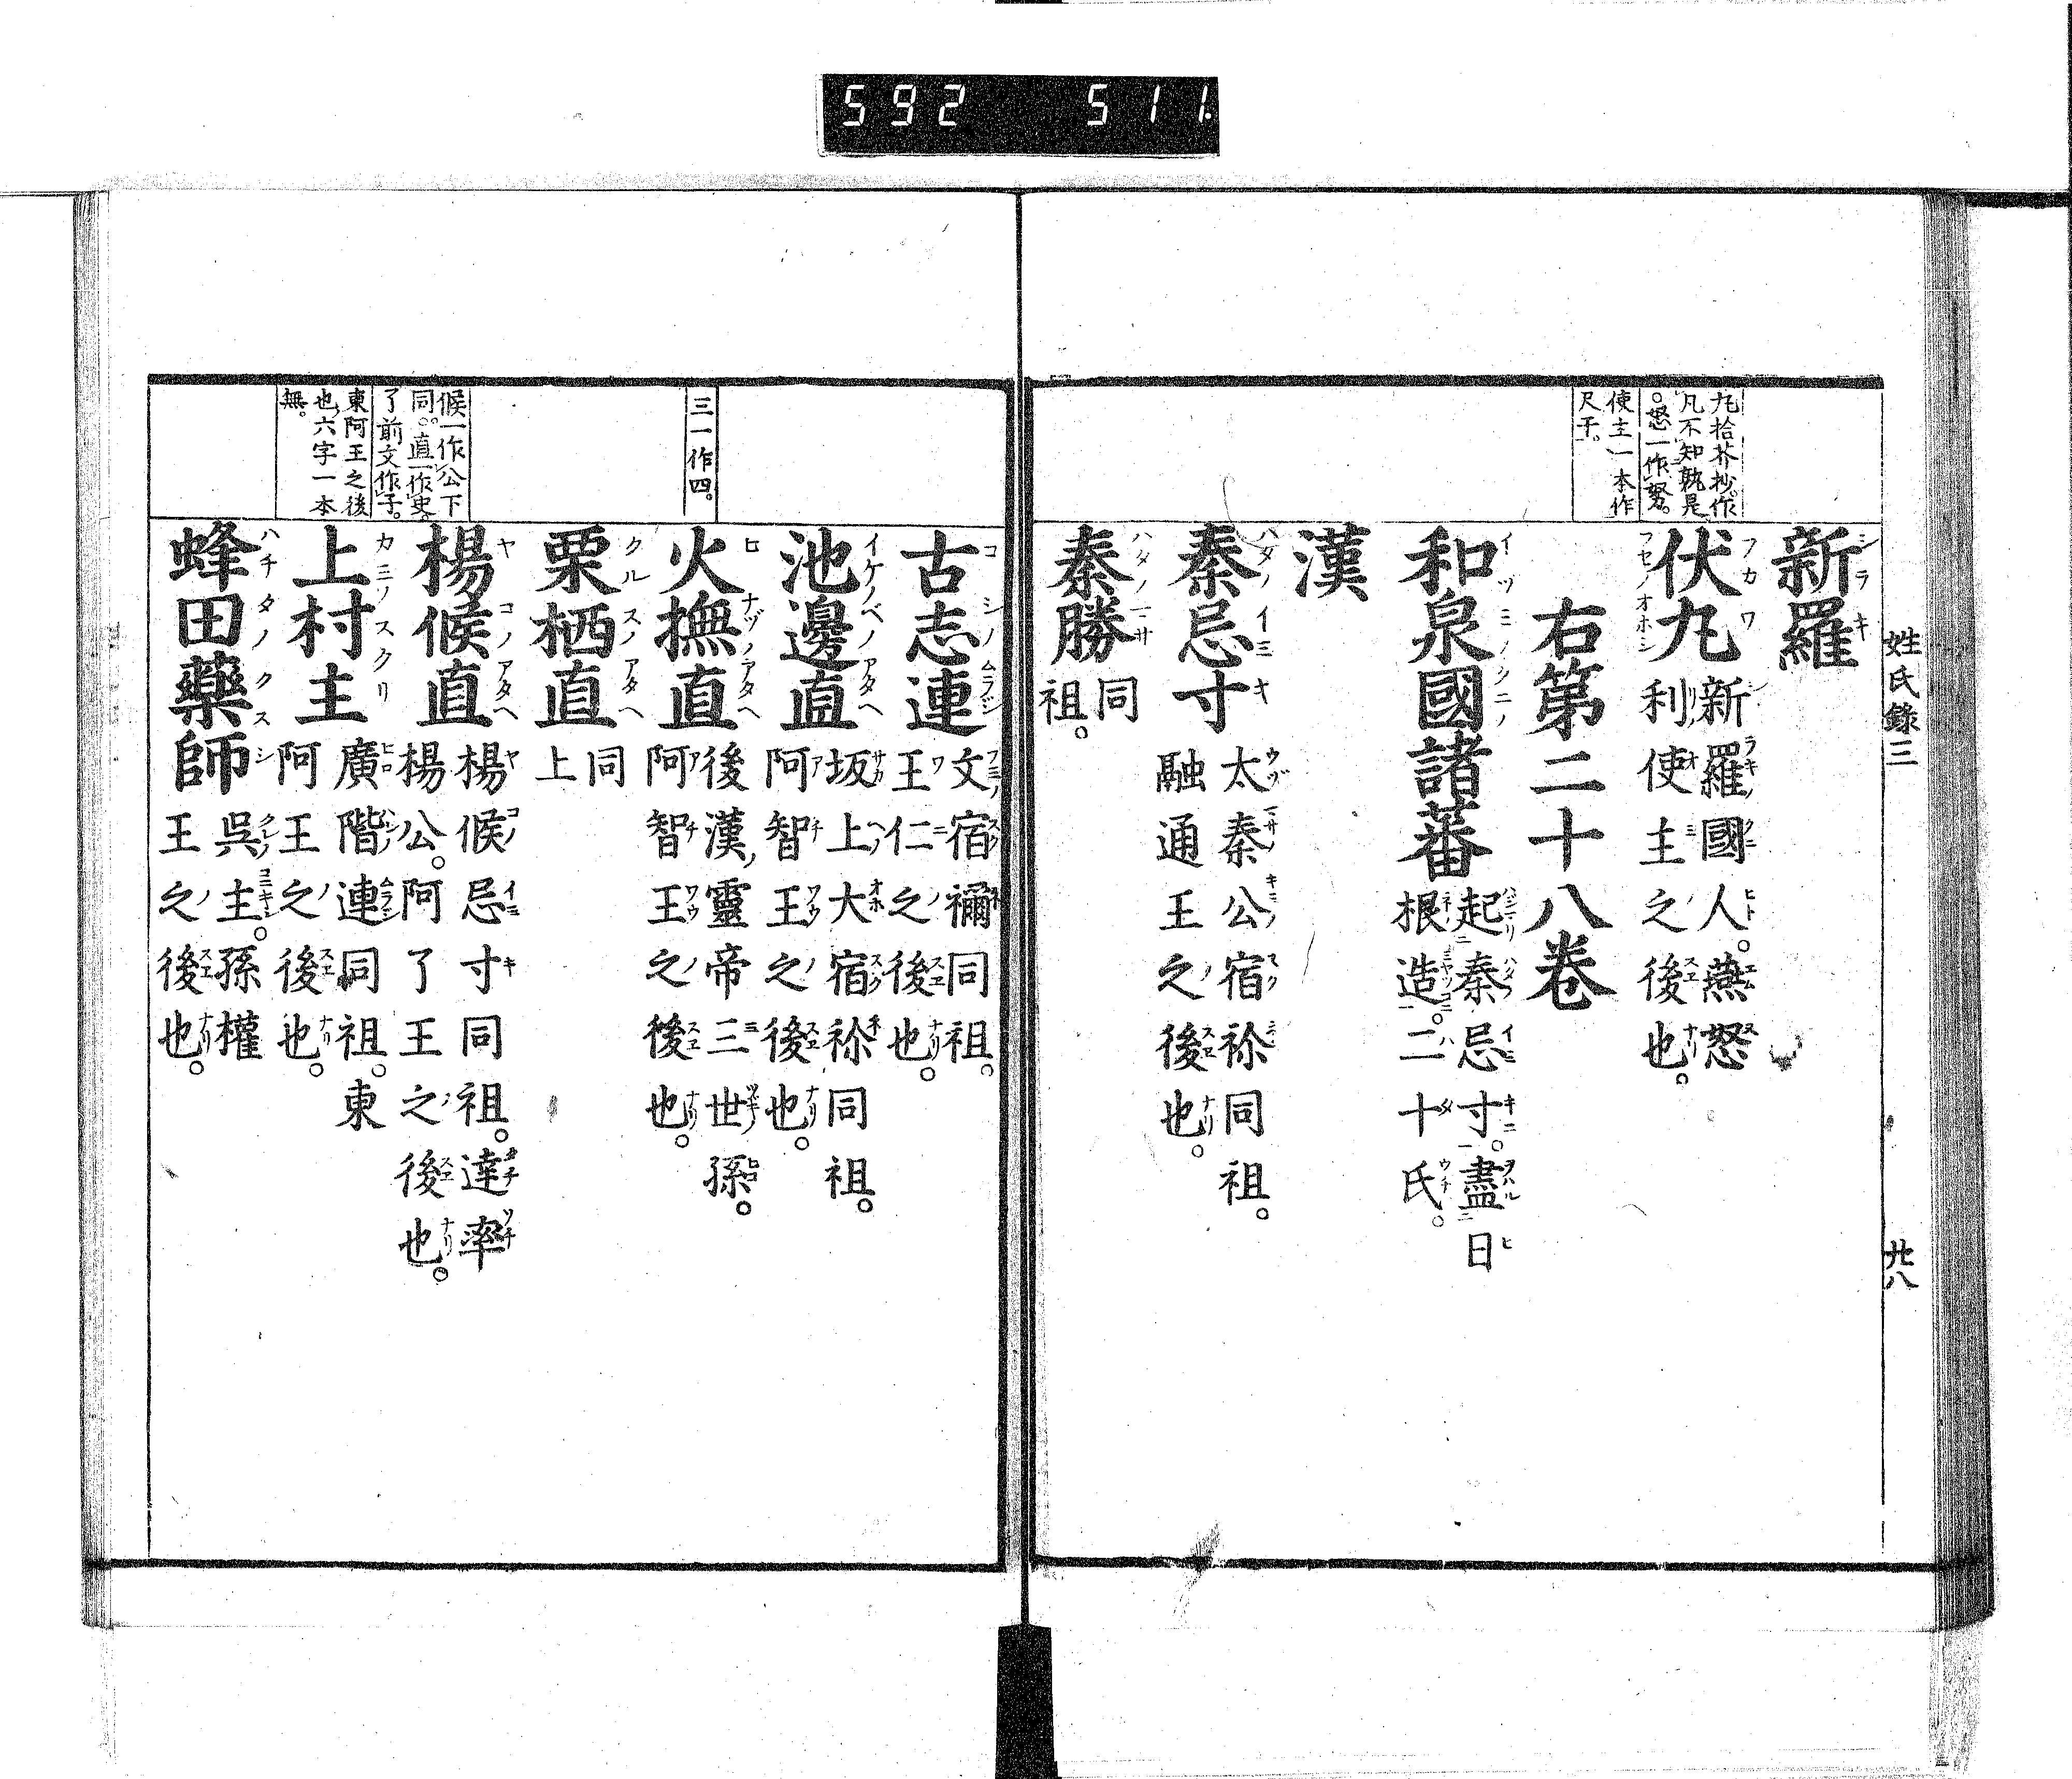 592 511.
姓氏錄三
廿八
九拾芥抄作
凡不知孰是
。怒一作努。
使主一本作
尺干。
新羅
伏九 新羅國人。燕怒
利使主之後也。
右第二十八卷
和泉國諸蕃 起秦忌寸。盡日
根造。二十氏。
漢
秦忌寸 太秦公宿祢同祖。
融通王之後也。
秦勝 同
祖。
三一作四。
候一作公下
同。直一作史。
了前文作子。
東阿王之後
也六字一本
無。
古志連 文宿禰同祖。
王仁之後也。
池邊直 坂上大宿祢同祖。
阿智王之後也。
火撫直 後漢靈帝三世孫。
阿智王之後也。
栗栖直 同
上
楊候直 楊候忌寸同祖。達率
楊公。阿了王之後也。
上村主 廣階連同祖。東
阿王之後也。
蜂田藥師 呉主。孫權
王之後也。